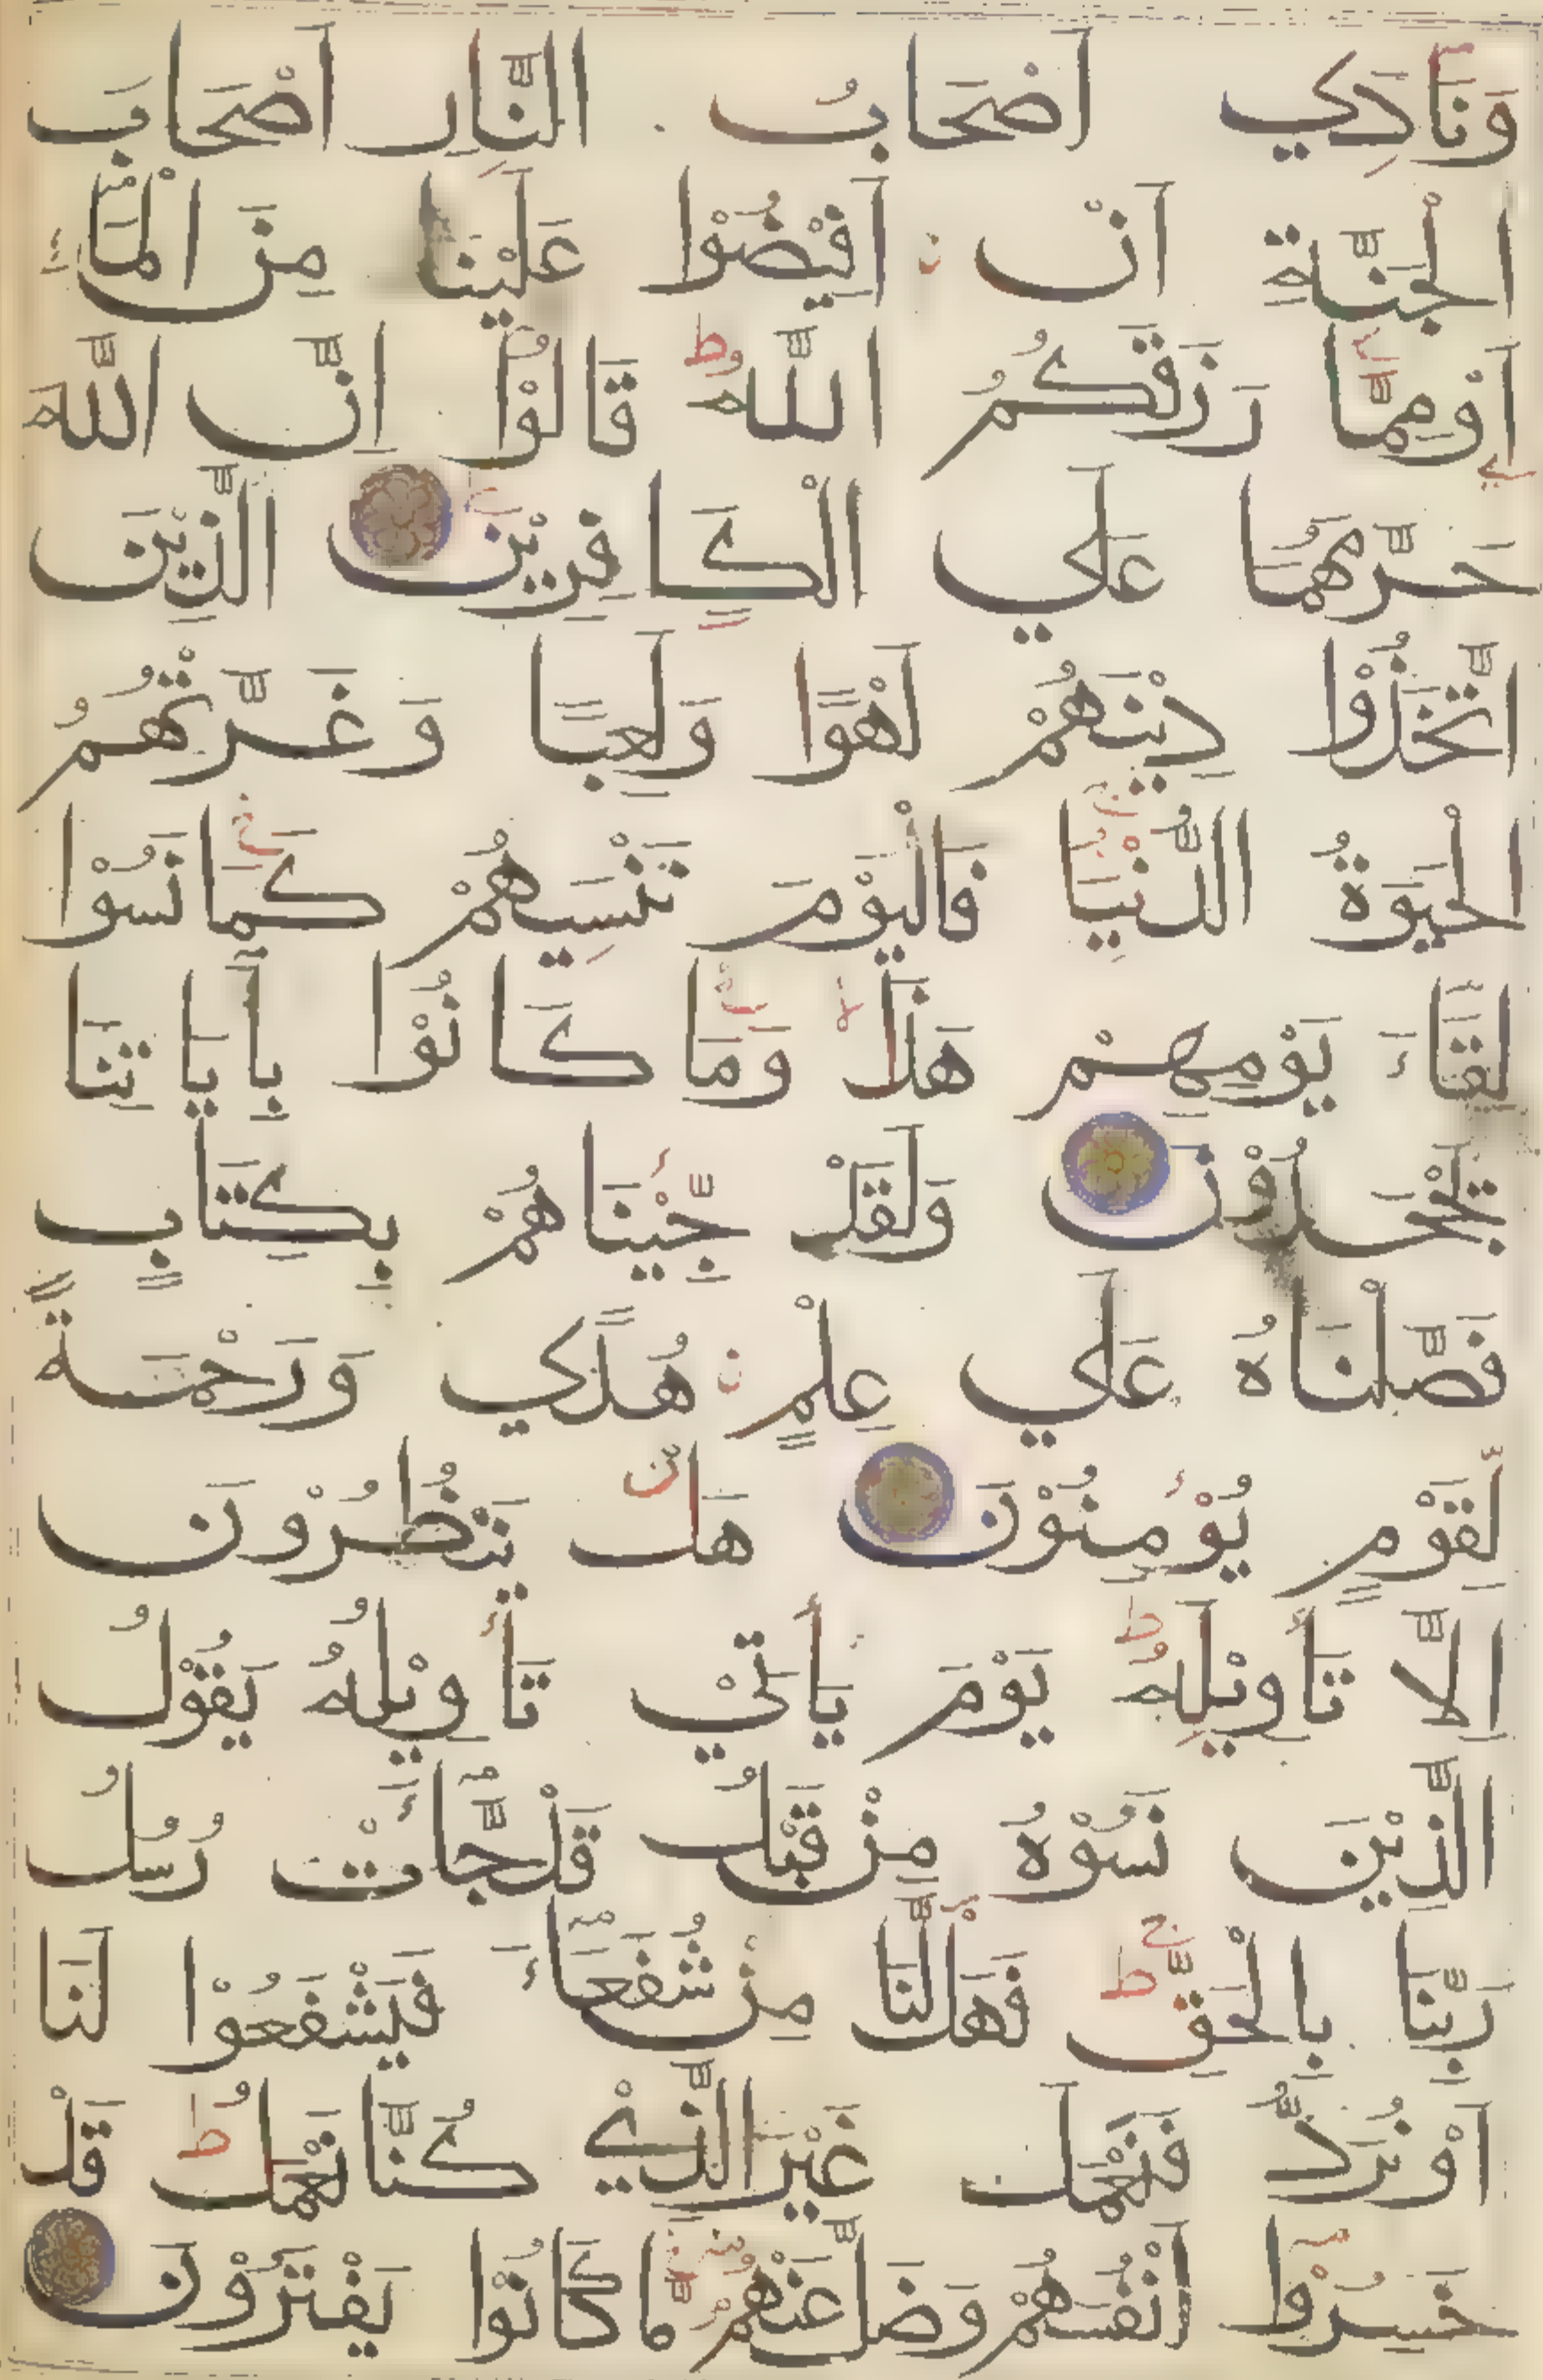 وَنَادَي أَصْحَابُ النَّارِ أَصْحَابَ
الْجَنَّةِ أَنْ أَفِيْضُوْا عَلَيْنَا مِنَ الْمَاءِ
أَوْ مِمَّا رَزَقَكُمُ اللَّهُ ط قَالُوْا إِنَّ اللَّهَ
حَرَّمَهُمَا عَلَي الْكَافِرِيْنَ الَّذِيْنَ
اتَّخَذُوْا دِيْنَهُمْ لَهْوًا وَلَعِبًا وَغَرَّتْهُمُ
الْحَيَوةُ الدُّنْيَا فَالْيَوْمَ نَنْسَيهُمْ كَمَا نَسُوْا
لِقَاءَ يَوْمِهِمْ هَذَا وَمَا كَانُوْا بِاَيَاتِنَا
يَجْحَدُوْنَ وَلَقَدْ جِّئْنَاهُمْ بِكِتَابٍ
فَصَّلْنَاهُ عَلَي عِلْمٍ هُدًي وَرَحْمَةً
لِقَوْمٍ يُؤْمِنُوْنَ هَلْ يَنْظُرُوْنَ
اِلَّا تَأْوِيْلَهُ ط يَوْمَ يَأْتِيْ تَأْوِيْلُهُ يَقُوْلُ
الَّذِيْنَ نَسُوْهُ مِنْ قَبْلُ قَدْ جَّاءَتْ رُسُلُ
رَبِّنَا بِالْحَقِّ ط فَهَلْ لَّنَا مِنْ شُفَعَاءَ فَيَشْفَعُوْا لَنَا
اَوْ نُرَدُّ فَنَعْمَلَ غَيْرَ الَّذِيْ كُنَّا نَعْمَلُ ط قَدْ
خَسِرُوْا اَنْفُسَهُمْ وَضَلَّ عَنْهُمْ مَّا كَانُوْا يَفْتَرُوْنَ